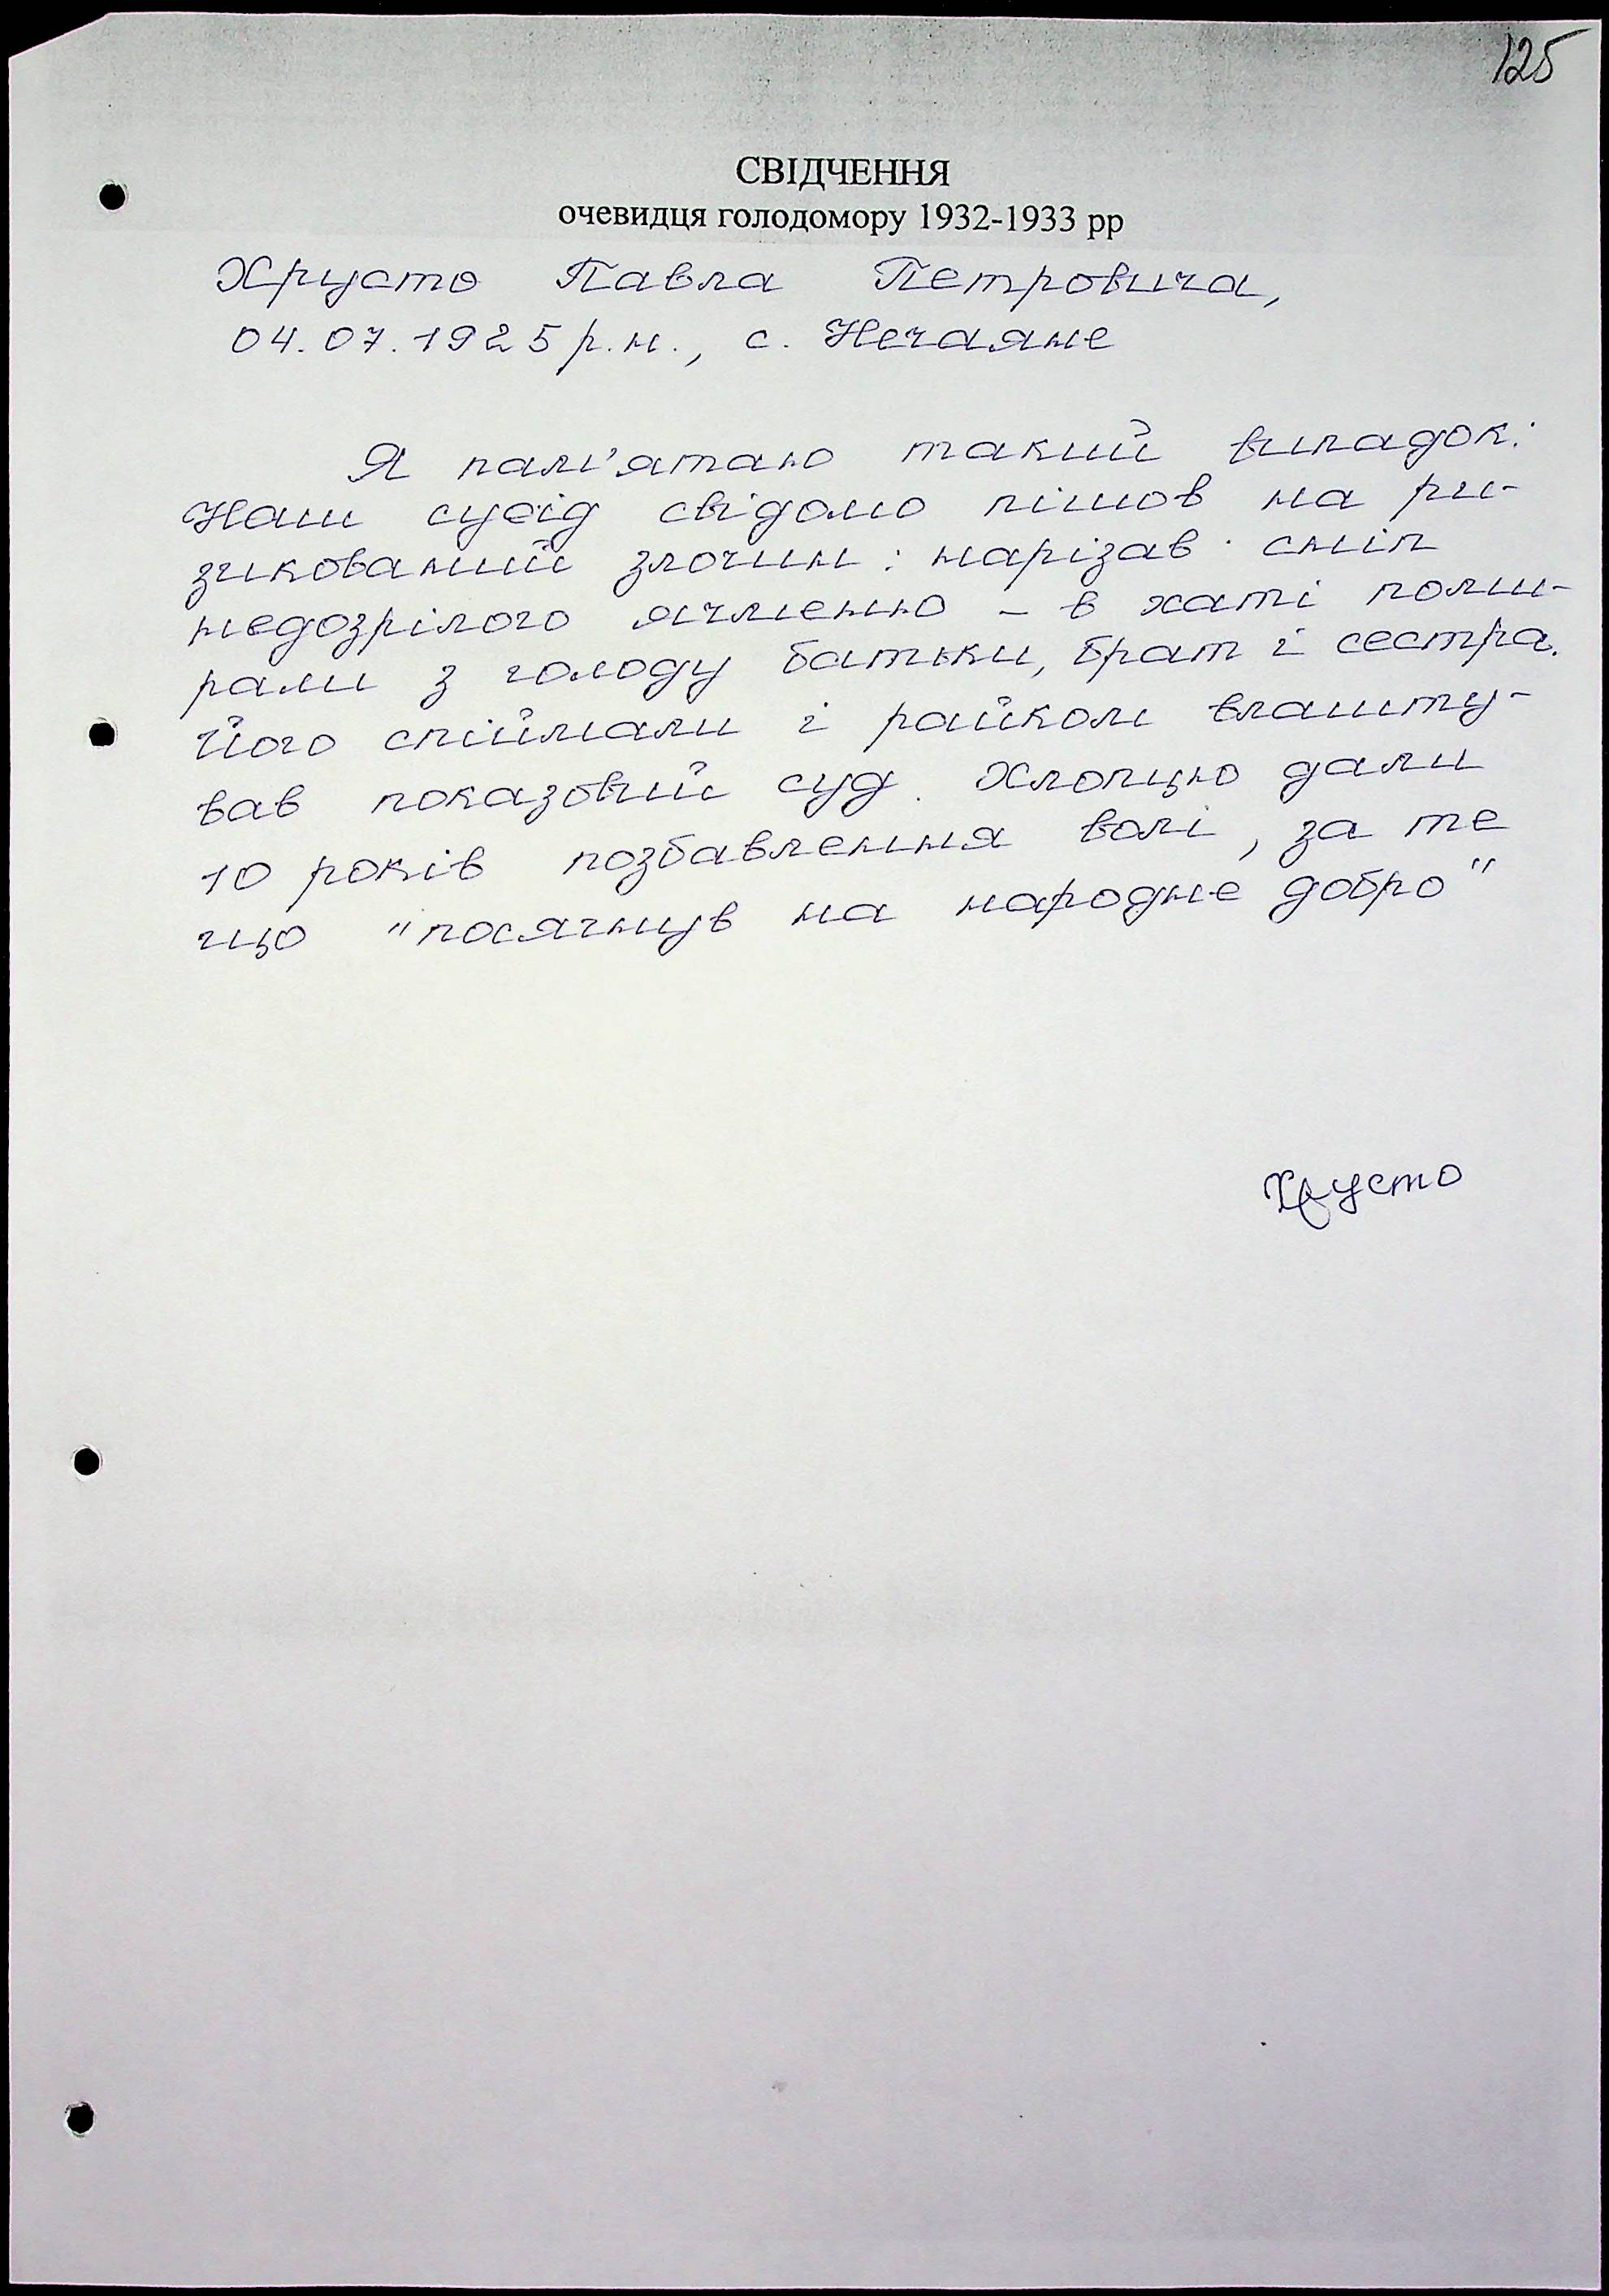 125
СВІДЧЕННЯ
очевидця голодомору 1932-1933 рр
Хрусто Павла Петровича,
04.07.1925 р.н., с. Нечаяне
Я пам'ятаю такий випадок:
Наш сусід свідомо пішов на ри-
зикований злочин: нарізав сніп
недозрілого ячменю – в хаті поми-
рали з голоду батьки, брат і сестра.
Його спіймали і райком влашту-
вав показовий суд. Хлопцю дали
10 років позбавлення волі, за те
що "посягнув на народне добро"
Хрусто